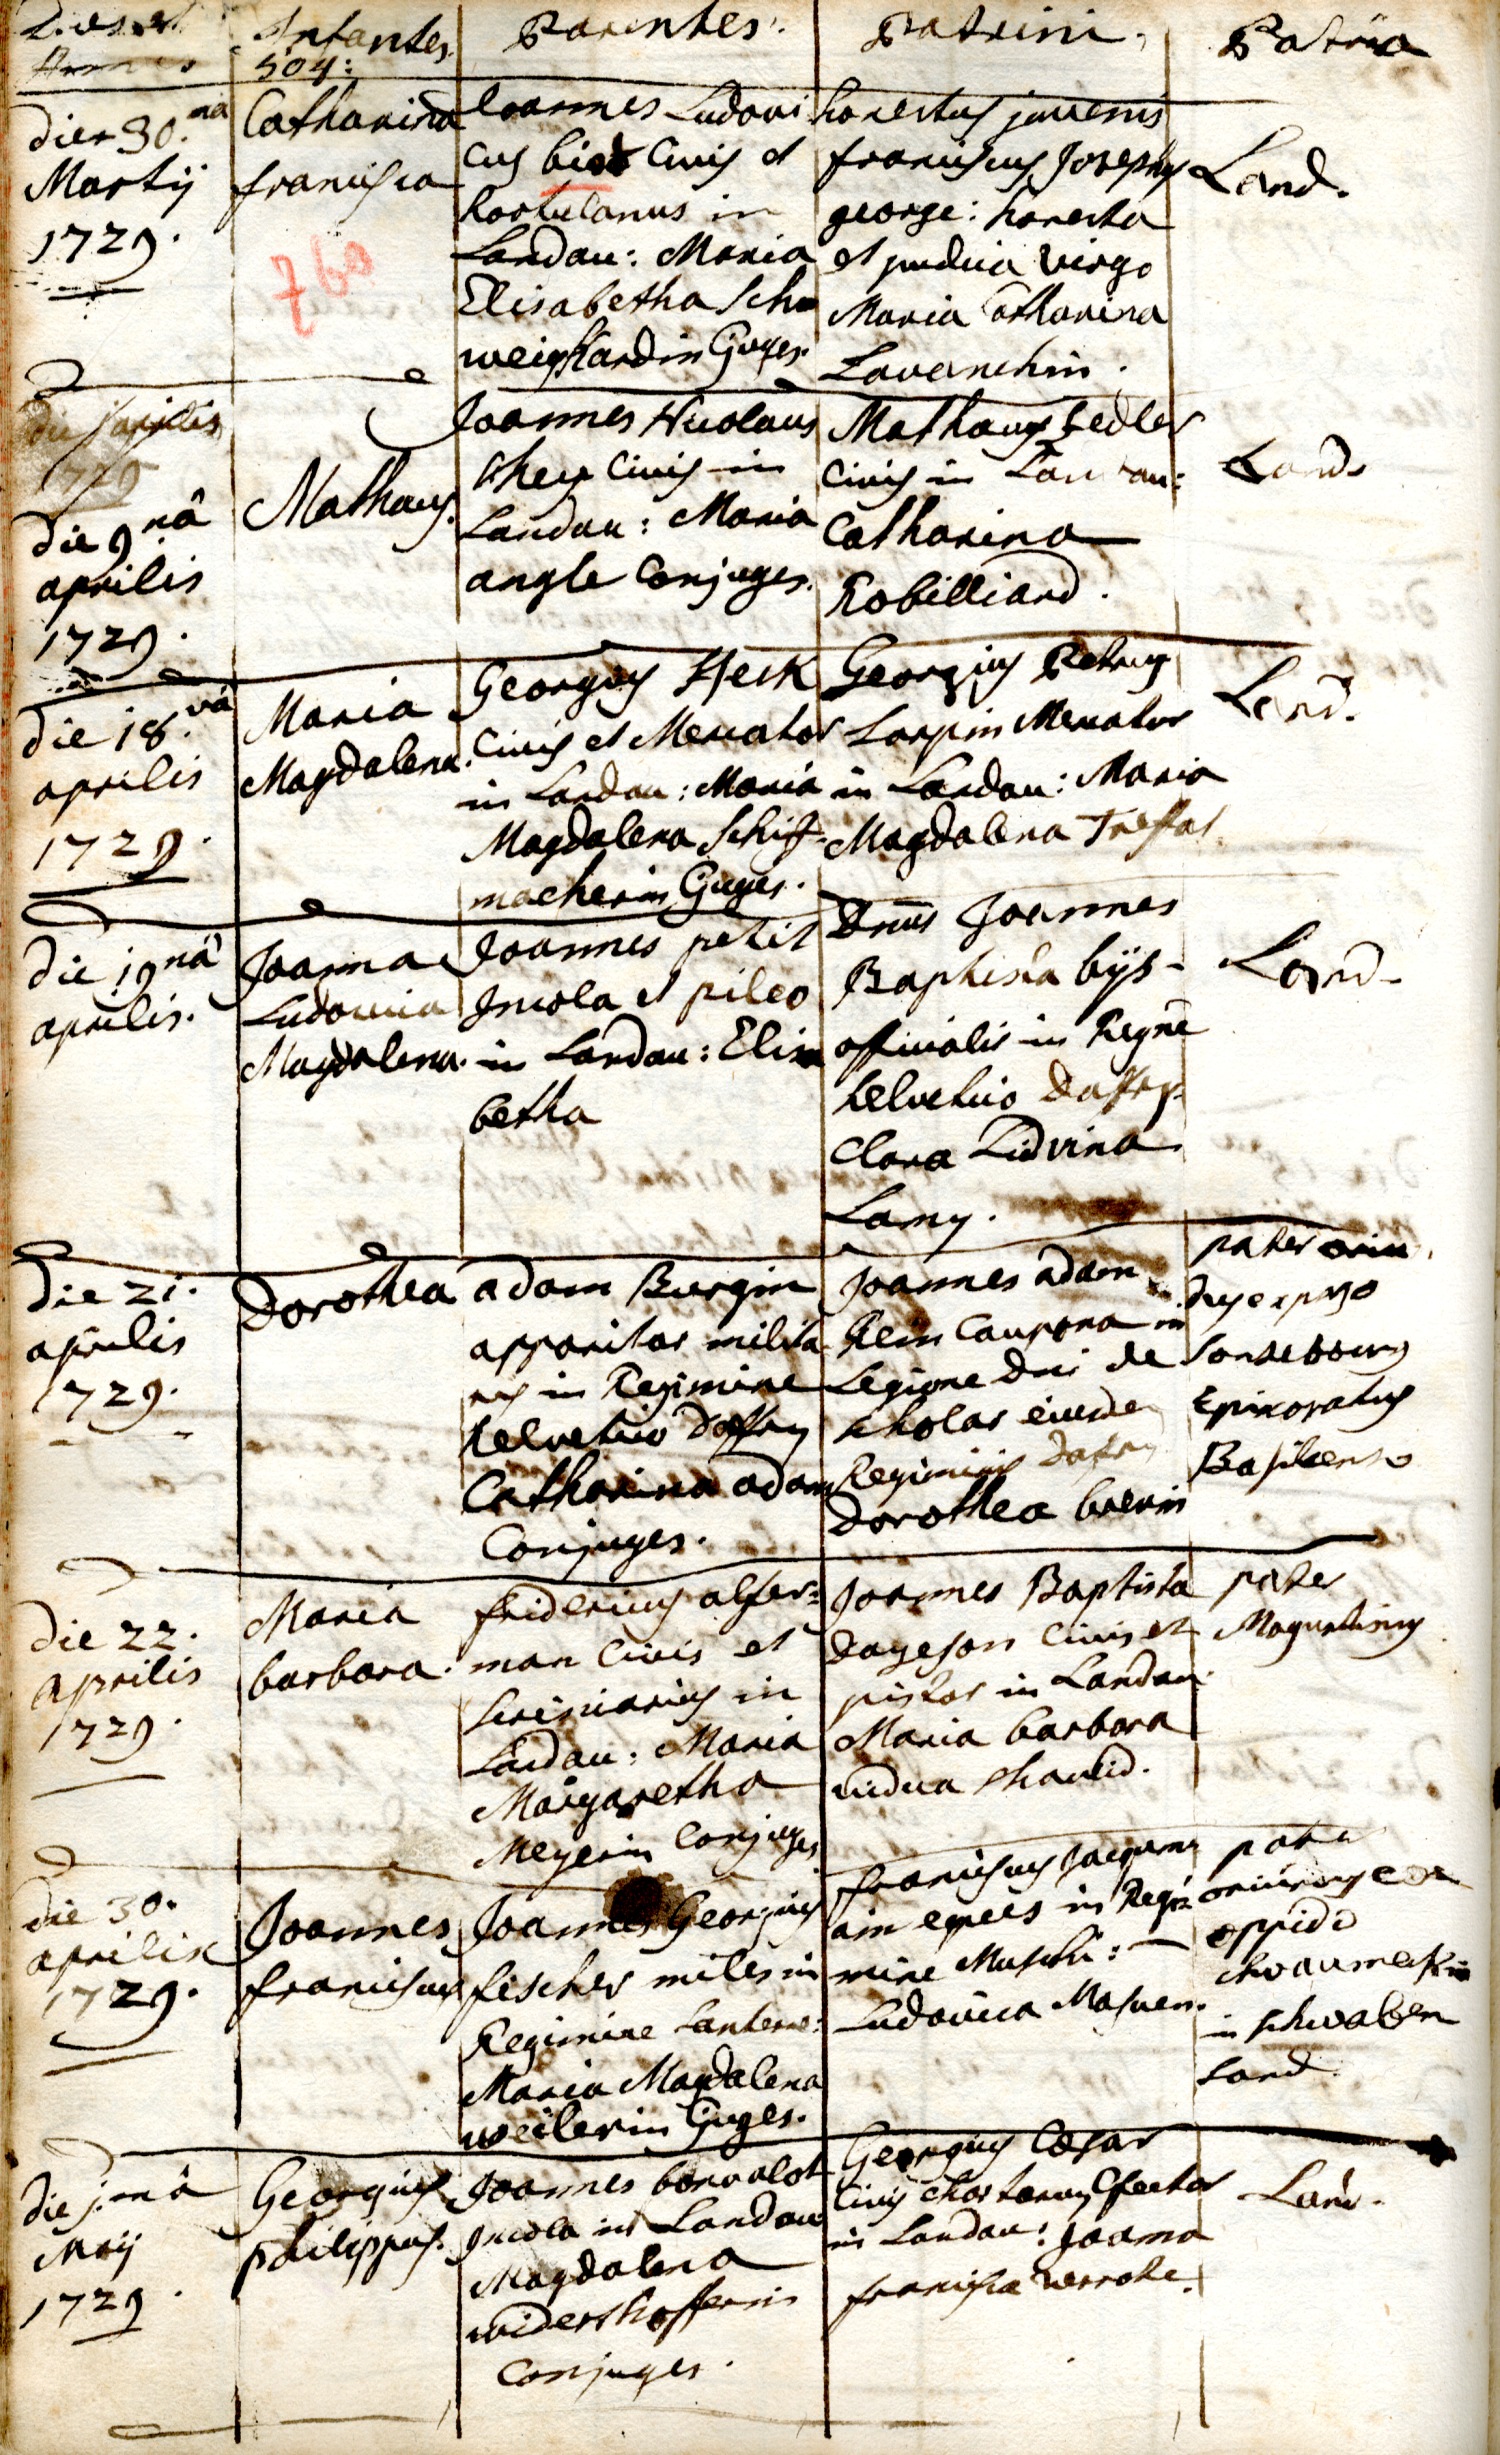 Dies et
Infantes.
Parentes.
Patrini.
Patria
504:
die 30.ma
Martij
1729.
Catharina
francisca
760
Joannes Ludovi
cus bist Civis et
hortulanus in
Landau: Maria
Elisabetha Sch
weighardin Cjuges.
honestus juvenis
franciscus Josephus
george: honesta
et pudica virgo
Maria Catharina
Lavanchin.
Land.
die aprilis
1729
die 9.nâ
aprilis
1729.
Mathaus.
Joannes Nicolaus
Civis in
Landau: Maria
angle Conjuges.
Mathaus sedler
Civis in Landau:
Catharina
Robilliard.
Land.
die 18.vâ
aprilis
1729.
Maria
Magdalena.
Georgius Heck
Civis et Mercator
in Landau: Maria
Magdalena Schif-
macherin Cjuges.
Georgius Petrus
Larpin Mercator
in Landau: Maria
Magdalena Treffat
Land.
die 19nâ
aprilis.
Joanna
Ludovica
Magdalena.
Joannes petit
Incola et pileo
in Landau: Elisa
betha
Dnus Joannes
Baptista bijs-
officialis in Regne
helvetico Daffry.
Clara Lidvina
Lamy.
Land.
Die 21.
aprilis
1729.
Dorothea
adam Burgin
apparitor milita
ris in Regimine
helvetico Daffry
Catharina adam
Conjuges.
Joannes adam
Rein Caupona in
Legione Dni de
scholar eiusde
Regiminis Dafry
Dorothea brerin
pater oriun
dus ex pago
Sontebourg
Episcopatus
Basileens
Die 22.
aprilis
1729.
Maria
barbara.
fridericus alfer=
man Civis et
scriniarius in
Landau: Maria
Margaretha
Meyerin Conjuges
Joannes Baptista
Dageson Civis et
pistor in Landau:
Maria barbara
vidua
pater
Moguntinus
die 30.
aprilis
1729.
Joannes
franciscus
Joannes Georgius
fischer miles in
Regimine
Maria Magdalena
weilerin Cjuges.
franciscus Jacquem
ain eques in Regi
mine
Ludovica
pater
oriundus ex
oppido
in schwaben
Land.
die 1.mâ
Maij
1729.
Georgius
philippus.
Joannes bonvalot
Incola in Landau
Magdalena
widerthofferin
Conjuges.
Georgius Cæsar
Civis chartarum Cfector
in Landau: Joanna
francisca
Land.